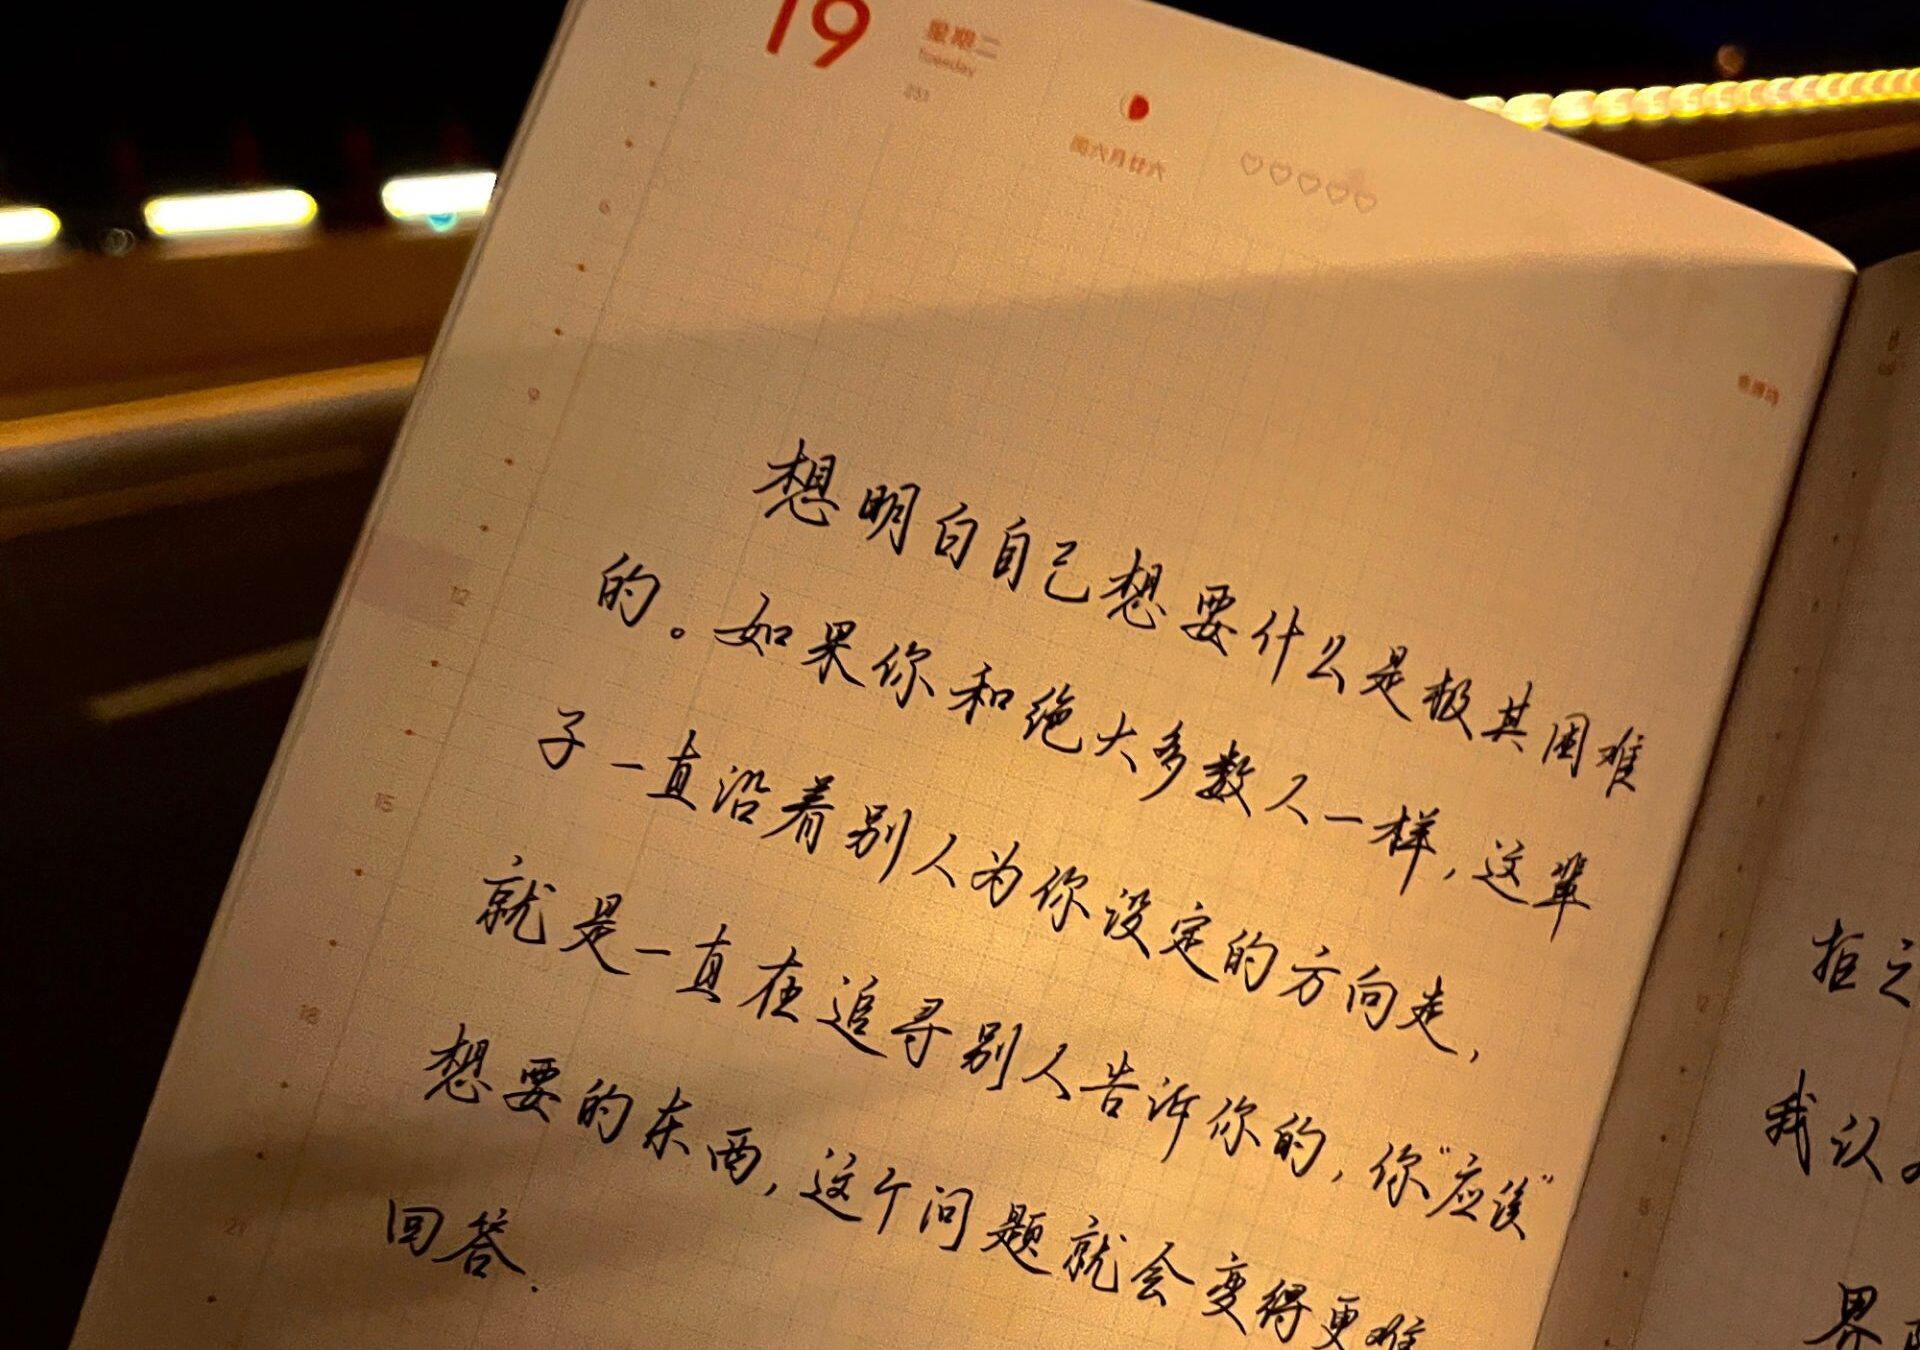 19
星期二
Tuesday
闰六月廿六
9
12
15
18
21
想明白自己想要什么是极其困难
的。如果你和绝大多数人一样,这辈
子一直沿着别人为你设定的方向走,
就是一直在追寻别人告诉你的,你"应该"
想要的东西,这个问题就会变得更难
回答.
拒之
我认为
界